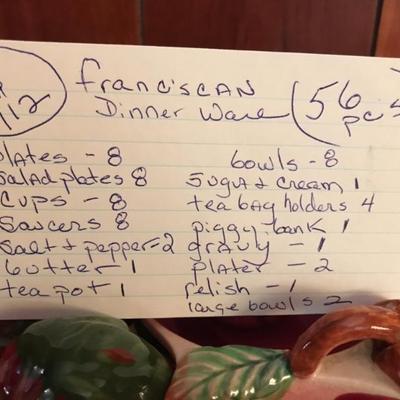 112
Franciscan
Dinner Ware
56
pc
plates - 8
bowls - 8
salad plates 8
sugar + cream 1
cups - 8
tea bag holders 4
saucers 8
piggy bank 1
salt + pepper - 2
gravy - 1
butter 1
plater - 2
tea pot 1
relish - 1
large bowls 2